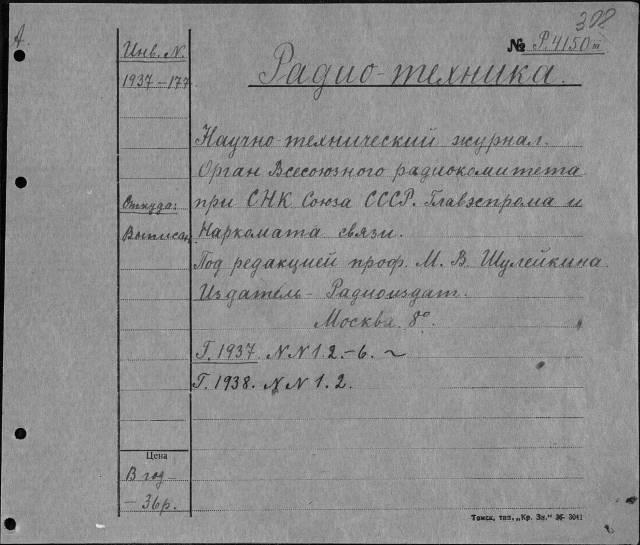 А.
308
№ Р.4150 III
Инв. N.
1937-177
Радио-техника.
Научно-технический журнал.
Орган Всесоюзного радиокомитета
при СНК Союза СССР. Главэспрома и
Наркомата связи.
Под редакцией проф. М. В. Шулейкина
Издатель - Радиоиздат.
Москва. 8°.
Г. 1937. N N 1. 2.-6. ~
Г. 1938. N N 1. 2.
Откуда:
Выписан
Цена
В год -
- 36р.
Томск, тип. „Кр. Зн.“ 36- 3041